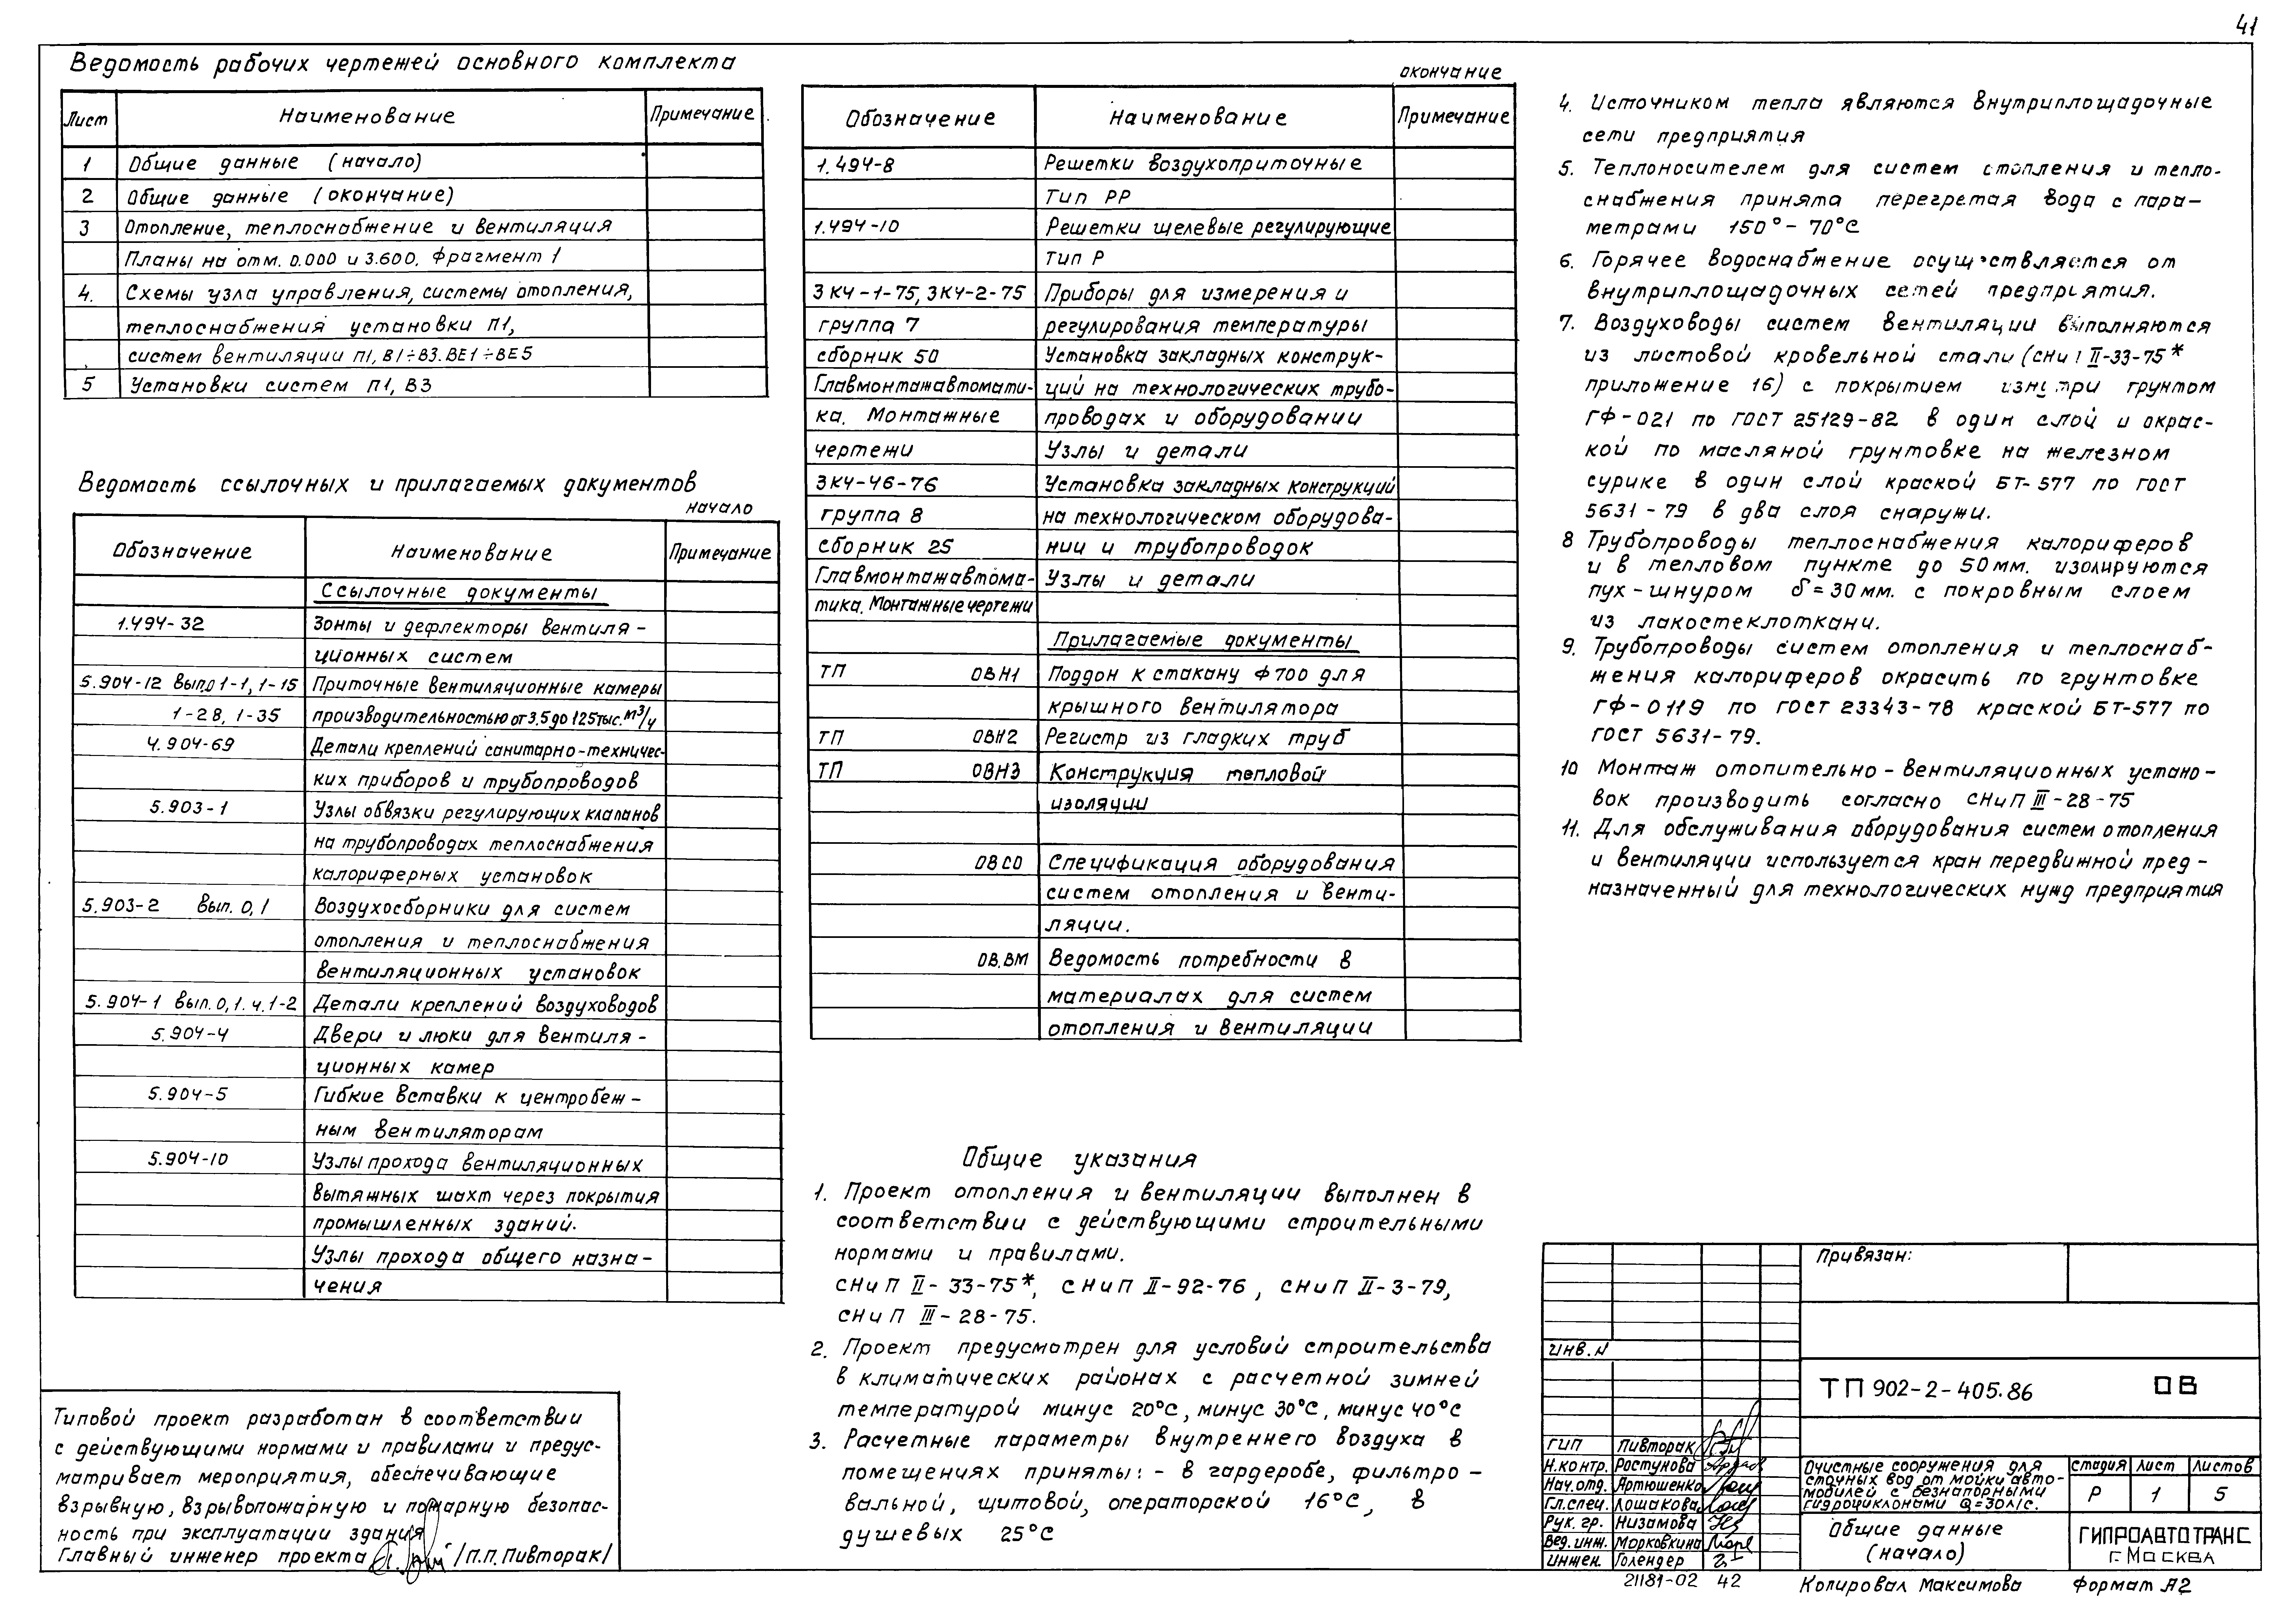 41
Ведомость рабочих чертежей основного комплекта
Лист Наименование Примечание
1 Общие данные (начало)
2 Общие данные (окончание)
3 Отопление, теплоснабжение и вентиляция
Планы на отм. 0.000 и 3.600. Фрагмент 1
4. Схемы узла управления, системы отопления,
теплоснабжения установки П1,
систем вентиляции П1, В1÷В3. ВЕ1÷ВЕ5
5 Установки систем П1, В3
Ведомость ссылочных и прилагаемых документов
начало
Обозначение Наименование Примечание
Ссылочные документы
1.494-32 Зонты и дефлекторы вентиля-
ционных систем
5.904-12 вып.0 1-1, 1-15 Приточные вентиляционные камеры
1-28, 1-35 производительностью от 3,5 до 125 тыс. м³/ч
4.904-69 Детали креплений санитарно-техничес-
ких приборов и трубопроводов
5.903-1 Узлы обвязки регулирующих клапанов
на трубопроводах теплоснабжения
калориферных установок
5.903-2 вып. 0,1 Воздухосборники для систем
отопления и теплоснабжения
вентиляционных установок
5.904-1 вып. 0,1. ч.1-2 Детали креплений воздуховодов
5.904-4 Двери и люки для вентиля-
ционных камер
5.904-5 Гибкие вставки к центробеж-
ным вентиляторам
5.904-10 Узлы прохода вентиляционных
вытяжных шахт через покрытия
промышленных зданий.
Узлы прохода общего назна-
чения
Типовой проект разработан в соответствии
с действующими нормами и правилами и предус-
матривает мероприятия, обеспечивающие
взрывную, взрывопожарную и пожарную безопас-
ность при эксплуатации здания
Главный инженер проекта /П.П. Пивторак/
окончание
Обозначение Наименование Примечание
1.494-8 Решетки воздухоприточные
Тип РР
1.494-10 Решетки щелевые регулирующие
Тип Р
ЗК4-1-75, ЗК4-2-75 Приборы для измерения и
группа 7 регулирования температуры
сборник 50 Установка закладных конструк-
Главмонтажавтомати- ций на технологических трубо-
ка. Монтажные проводах и оборудовании
чертежи Узлы и детали
ЗК4-46-76 Установка закладных конструкций
группа 8 на технологическом оборудова-
сборник 25 нии и трубопроводах
Главмонтажавтома- Узлы и детали
тика. Монтажные чертежи
Прилагаемые документы
ТП ОВН1 Поддон к стакану Ф 700 для
крышного вентилятора
ТП ОВН2 Регистр из гладких труб
ТП ОВН3 Конструкция тепловой
изоляции
ОВСО Спецификация оборудования
систем отопления и венти-
ляции.
ОВ.ВМ Ведомость потребности в
материалах для систем
отопления и вентиляции
Общие указания
1. Проект отопления и вентиляции выполнен в
соответствии с действующими строительными
нормами и правилами.
СНиП II-33-75*, СНиП II-92-76, СНиП II-3-79,
СНиП III-28-75.
2. Проект предусмотрен для условий строительства
в климатических районах с расчетной зимней
температурой минус 20°С, минус 30°С, минус 40°С
3. Расчетные параметры внутреннего воздуха в
помещениях приняты: - в гардеробе, фильтро-
вальной, щитовой, операторской 16°С, в
душевых 25°С
4. Источником тепла являются внутриплощадочные
сети предприятия
5. Теплоносителем для систем отопления и тепло-
снабжения принята перегретая вода с пара-
метрами 150°-70°С
6. Горячее водоснабжение осуществляется от
внутриплощадочных сетей предприятия.
7. Воздуховоды систем вентиляции выполняются
из листовой кровельной стали (СНиП II-33-75*
приложение 16) с покрытием изнутри грунтом
ГФ-021 по ГОСТ 25129-82 в один слой и окрас-
кой по масляной грунтовке на железном
сурике в один слой краской БТ-577 по ГОСТ
5631-79 в два слоя снаружи.
8 Трубопроводы теплоснабжения калориферов
и в тепловом пункте до 50мм. изолируются
пух-шнуром δ=30мм. с покровным слоем
из лакостеклоткани.
9. Трубопроводы систем отопления и теплоснаб-
жения калориферов окрасить по грунтовке
ГФ-0119 по ГОСТ 23343-78 краской БТ-577 по
ГОСТ 5631-79.
10 Монтаж отопительно-вентиляционных устано-
вок производить согласно СНиП III-28-75
11. Для обслуживания оборудования систем отопления
и вентиляции используется кран передвижной пред-
назначенный для технологических нужд предприятия
Привязан:
инв. N
ТП 902-2-405.86 ОВ
ГИП Пивторак
Н.контр. Растунова
Нач.отд. Артюшенко
Гл.спец. Лошакова
Рук. гр. Низамова
Вед.инж. Морковкина
Инжен. Голендер
Очистные сооружения для
сточных вод от мойки авто-
мобилей с безнапорными
гидроциклонами Q=30л/с.
стадия лист листов
Р 1 5
Общие данные
(начало)
ГИПРОАВТОТРАНС
г. Москва
21181-02 42
Копировал Максимова Формат А2